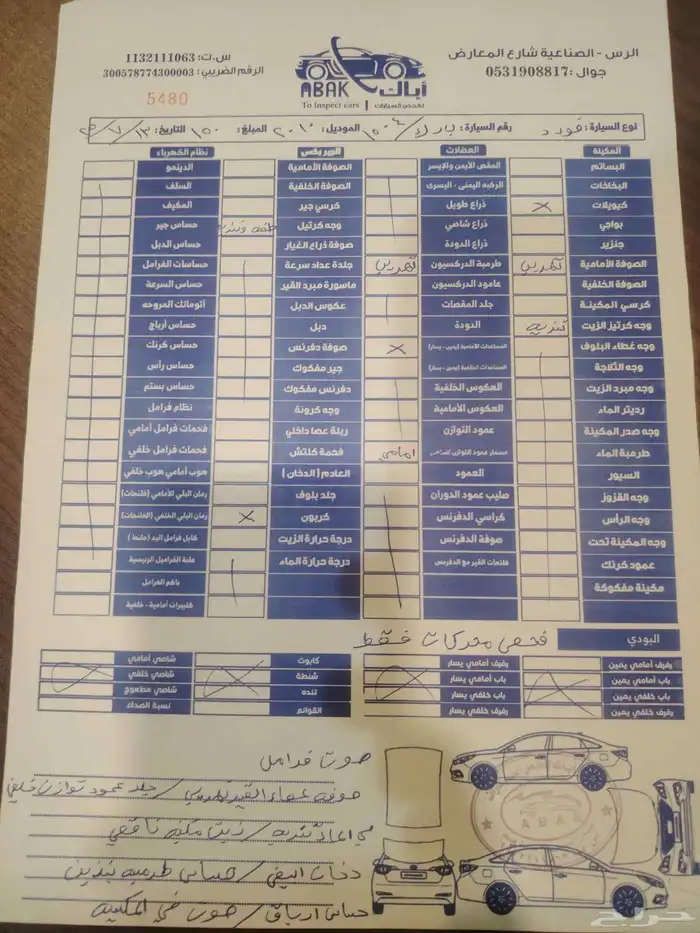 الرس - الصناعية شارع المعارض
جوال : 0531908817
ABAK أباك
To inspect cars | لفحص السيارات
س.ت: 1132111063
الرقم الضريبي: 300578774300003
5480
نوع السيارة : فورد رقم السيارة : الموديل: ٢٠١٠ المبلغ: ١٥٠ التاريخ:
المكينة
البساتم
البخاخات
كويلات ×
بواجي
جنزير
الصوفة الأمامية تهريب
الصوفة الخلفية
كرسي المكينة
وجه كرتيز الزيت تنديه
وجه غطاء البلوف
وجه الثلاجة
وجه مبرد الزيت
رديتر الماء
وجه صدر المكينة
طرمبة الماء
السيور
وجه القزوز
وجه الرأس
وجه المكينة تحت
عمود كرنك
مكينة مفكوكة
العضلات
المقص الأيمن والإيسر
الركبه اليمنى - اليسرى
ذراع طويل
ذراع شاصي
ذراع الدودة
طرمبة الدركسيون تهريب
عامود الدركسيون
جلد المقصات
الدودة
المساعدات الأمامية (يمين - يسار) ×
المساعدات الخلفية (يمين - يسار)
العكوس الخلفية
العكوس الأمامية
عمود التوازن
مسمار عمود التوازن امامي
العمود
صليب عمود الدوران
كراسي الدفرنس
صوفة الدفرنس
فلنجات القير مع الدفرنس
الجير بكس
الصوفة الأمامية
الصوفة الخلفية
كرسي جير
وجه كرتيل
صوفة ذراع الغيار
جلدة عداد سرعة
ماسورة مبرد القير
عكوس الدبل
دبل
صوفة دفرنس
جير مفكوك
دفرنس مفكوك
وجه كرونة
ريلة عصا داخلي
فحمة كلتش
العادم (الدخان)
جلد بلوف
كربون ×
درجة حرارة الزيت
درجة حرارة الماء
نظام الكهرباء
الدينمو
السلف
المكيف
حساس جير
حساس الدبل
حساسات الفرامل
حساس السرعة
أتوماتك المروحه
حساس أرباج
حساس كرنك
حساس رأس
حساس بستم
نظام فرامل
فحمات فرامل أمامي
فحمات فرامل خلفي
هوب أمامي هوب خلفي
رمان البلي الأمامي (فلنجات)
رمان البلي الخلفي (الفلنجات)
كابل فرامل اليد (جلنط)
علبة الفراميل الرئيسية
باكم الفرامل
كليبرات أمامية - خلفية
البودي فحص محركات فقط
رفرف أمامي يمين
باب أمامي يمين
باب خلفي يمين
رفرف خلفي يمين
رفرف أمامي يسار
باب أمامي يسار
باب خلفي يسار
رفرف خلفي يسار
كابوت
شنطة
تنده
القوائم
شاصي أمامي
شاصي خلفي
شاصي مطعوج
نسبة الصداء
صوت فرامل
صوفه عصاء القير تهريب / جلد عمود توازن خلفي
تنديه / زيت مكينه ناقص
دخان ابيض / حساس طرمبه بنزين
حساس ارباق / صوت في المكينه
ABAK
حراج